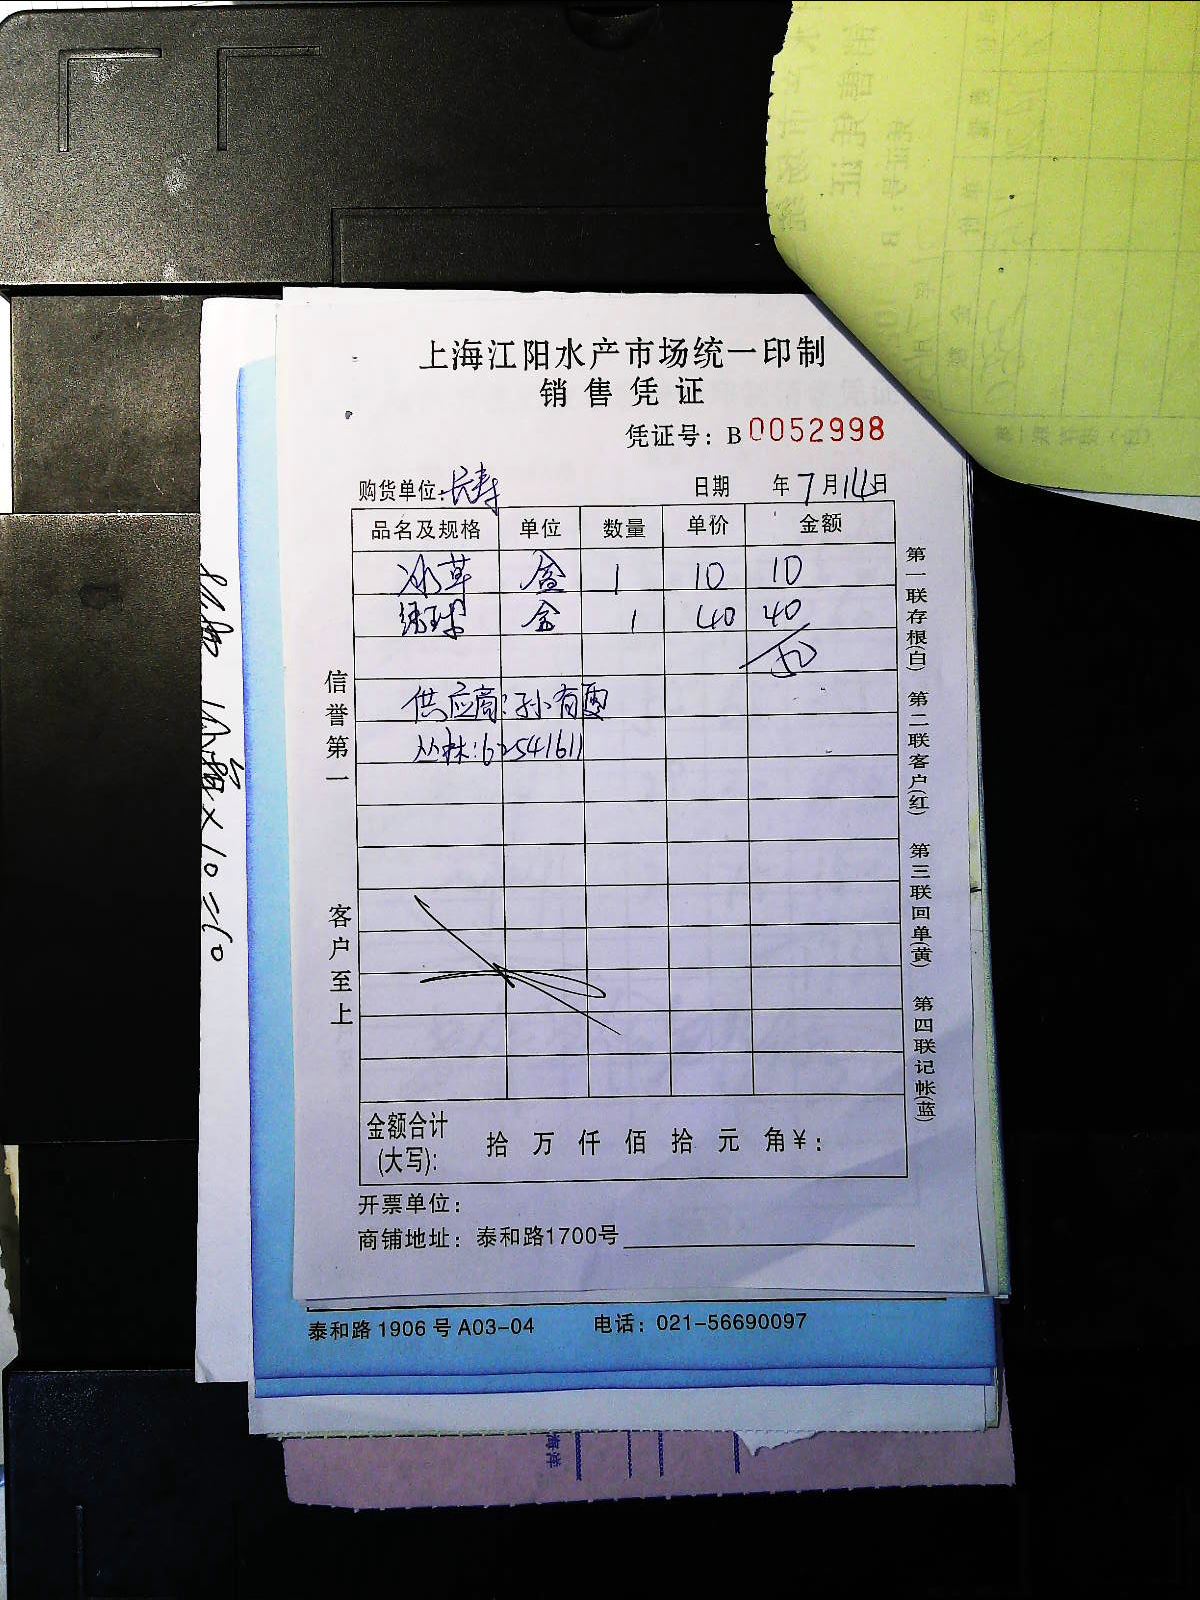 上海江阳水产市场统一印制
销售凭证
凭证号: B 0052998
购货单位: 长寿 日期 年 7 月 14 日
品名及规格 单位 数量 单价 金额
冰草 盒 1 10 10
绣球 盒 1 40 40
供应商: 孙有
丛林: 62541611
信誉第一
客户至上
第一联存根(白) 第二联客户(红) 第三联回单(黄) 第四联记帐(蓝)
金额合计
(大写): 拾 万 仟 佰 拾 元 角 ¥:
开票单位:
商铺地址: 泰和路1700号
泰和路 1906 号 A03-04 电话: 021-56690097